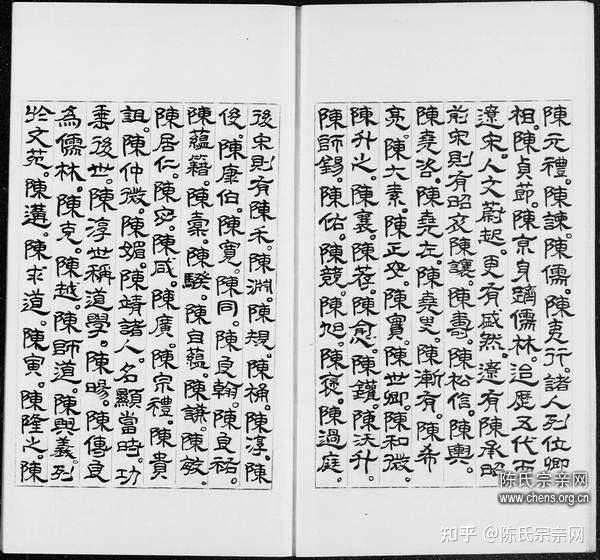 陳元禮。陳諫。陳儒。陳克行。諸人列位卿
相。陳貞節。陳京身躋儒林。治歷五代而
遼宋。人文蔚起。更有盛然。遼有陳承昭
前宋則有昭衮陳讓。陳壽。陳松信。陳輿
陳堯咨。陳堯左。陳堯叟。陳漸有。陳希
亮。陳太素。陳正。陳實。陳世卿。陳和微。
陳升之。陳襄。陳荐。陳愈。陳鑵。陳沃升。
陳師錫。陳佑。陳兢。陳旭。陳褒。陳過庭。
後宋則有陳禾。陳淵。陳規。陳桷。陳淳。陳
俊。陳康伯。陳寬。陳同。陳良翰。陳良祐。
陳蘊籍。陳橐。陳騤。陳自蘊。陳謙。陳敏
陳居仁。陳宓。陳咸。陳廣。陳宗禮。陳貴
誼。陳仲微。陳媚。陳靖諸人。名顯當時。功
垂後世。陳淳世稱道學。陳暘。陳傅良
為儒林。陳克。陳越。陳師道。陳與義。列
於文苑。陳遘。陳求道。陳寅。陳隆之。陳
陈氏宗亲网
www.chens.org.cn
知乎 @陈氏宗亲网